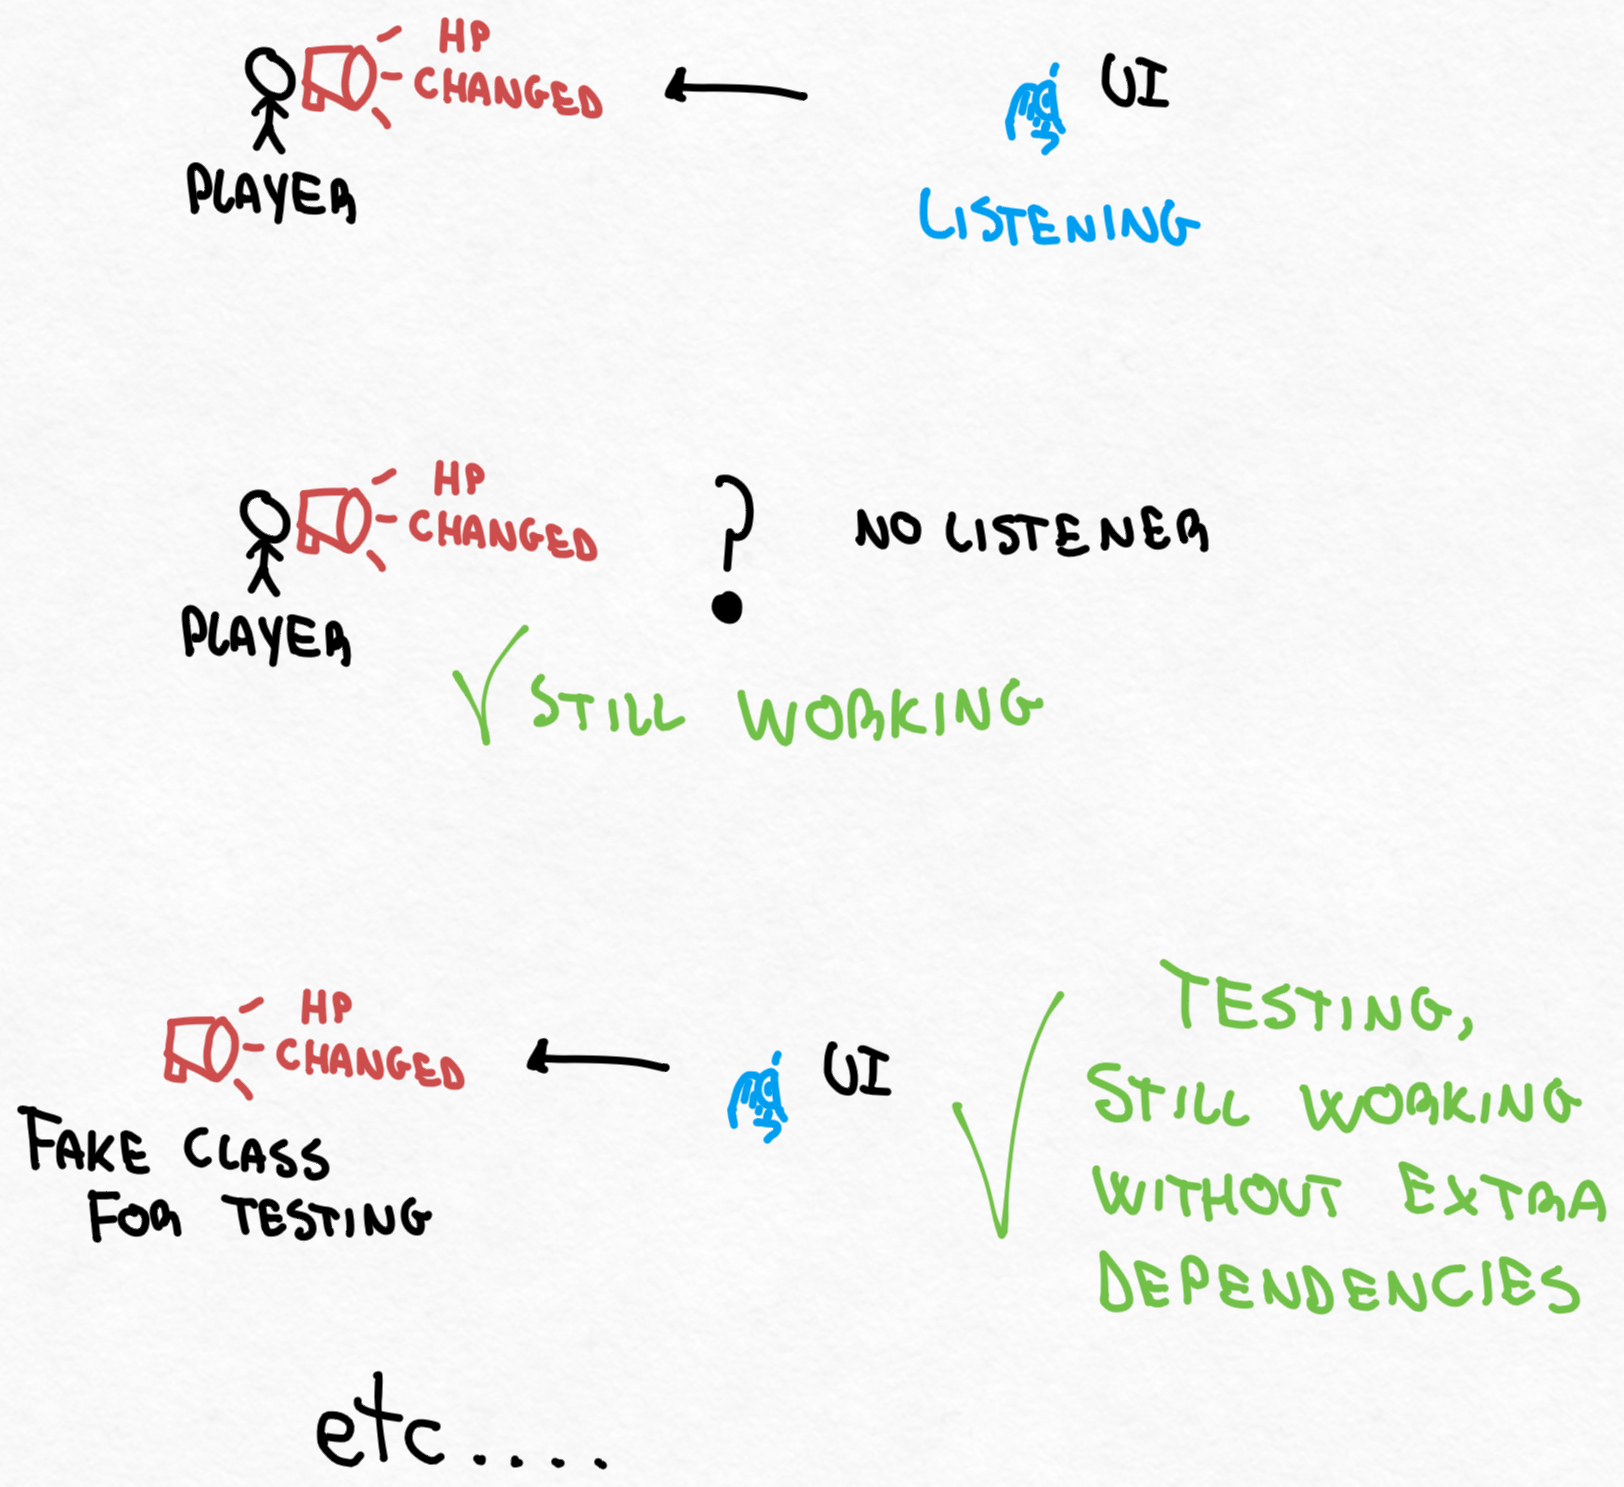 HP
CHANGED
UI
PLAYER
LISTENING
HP
CHANGED
NO LISTENER
PLAYER
STILL WORKING
HP
CHANGED
UI
FAKE CLASS
FOR TESTING
TESTING,
STILL WORKING
WITHOUT EXTRA
DEPENDENCIES
etc....